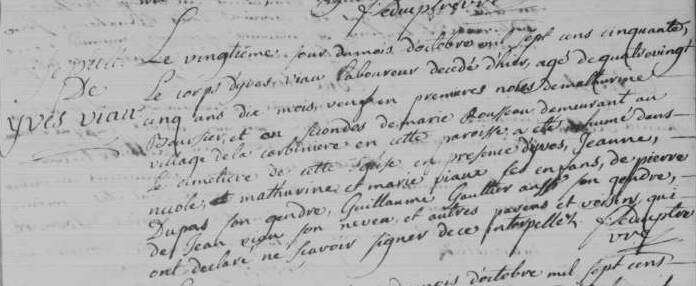 De
Yves viau
Le vingtième jour du mois d'octobre mil sept cens cinquante,
Le corps d'yves viau laboureur decédé d'hier, agé de quatrevingt
cinq ans dix mois, veuf en premieres noces de mathurine
Boursier, et en secondes de marie Rousseau demeurant au
village de la corbiniere en cette paroisse a eté inhumé dans
Le cimetiere de cette eglise en presence d'yves, Jeanne,
nicole, et mathurine et marie viaux ses enfans, de pierre
Dupas son gendre, Guillaume Gaultier aussi son gendre,
de Jean viau son neveu et autres parens et voisins qui
ont declaré ne scavoir signer de ce interpellez
mois d'octobre mil sept cens